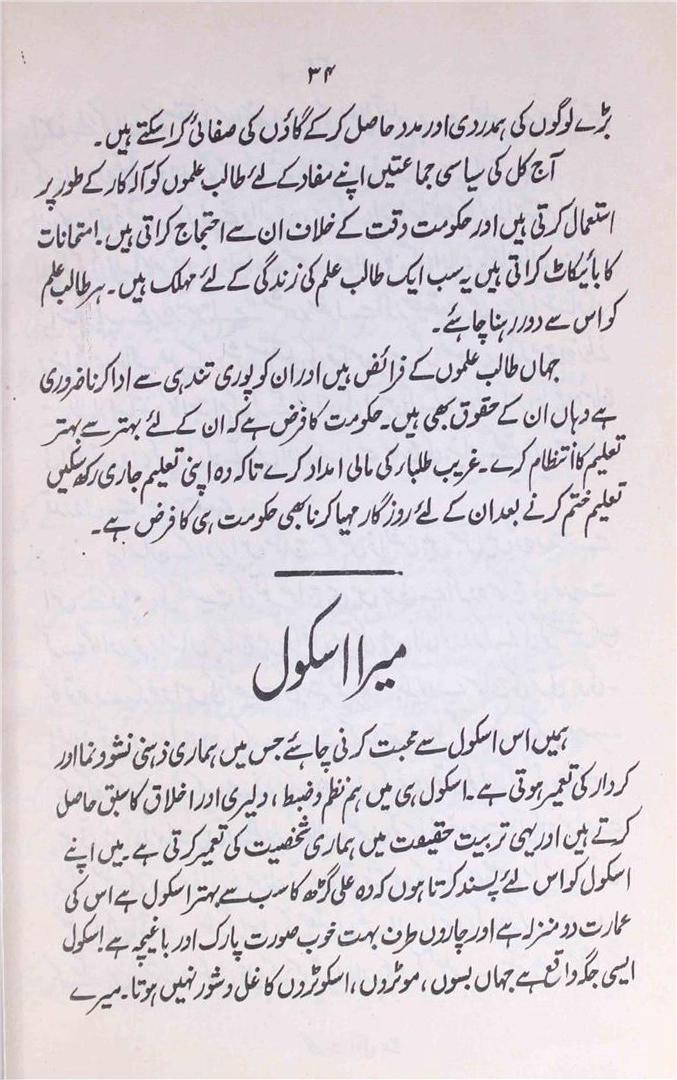 ۳۴
بڑے لوگوں کی ہمدردی اور مدد حاصل کر کے گاؤں کی صفائی کرا سکتے ہیں۔
آج کل کی سیاسی جماعتیں اپنے مفاد کے لئے طالب علموں کو آلہ کار کے طور پر
استعمال کرتی ہیں اور حکومت وقت کے خلاف ان سے احتجاج کراتی ہیں۔ امتحانات
کا بائیکاٹ کراتی ہیں یہ سب ایک طالب علم کی زندگی کے لئے مہلک ہیں۔ ہر طالب علم
کو اس سے دور رہنا چاہئے۔
جہاں طالب علموں کے فرائض ہیں اور ان کو پوری تندہی سے ادا کرنا ضروری
ہے وہاں ان کے حقوق بھی ہیں۔ حکومت کا فرض ہے کہ ان کے لئے بہتر سے بہتر
تعلیم کا انتظام کرے۔ غریب طلباء کی مالی امداد کرے تاکہ وہ اپنی تعلیم جاری رکھ سکیں
تعلیم ختم کرنے بعد ان کے لئے روزگار مہیا کرنا بھی حکومت ہی کا فرض ہے۔
میرا اسکول
ہمیں اس اسکول سے محبت کرنی چاہئے جس میں ہماری ذہنی نشو و نما اور
کردار کی تعمیر ہوتی ہے۔ اسکول ہی میں ہم نظم و ضبط، دلیری اور اخلاق کا سبق حاصل
کرتے ہیں اور یہی تربیت حقیقت میں ہماری شخصیت کی تعمیر کرتی ہے۔ میں اپنے
اسکول کو اس لئے پسند کرتا ہوں کہ وہ علی گڑھ کا سب سے بہتر اسکول ہے اس کی
عمارت دو منزلہ ہے اور چاروں طرف بہت خوب صورت پارک اور باغیچہ ہے۔ اسکول
ایسی جگہ واقع ہے جہاں بسوں، موٹروں، اسکوٹروں کا غل و شور نہیں ہوتا۔ میرے